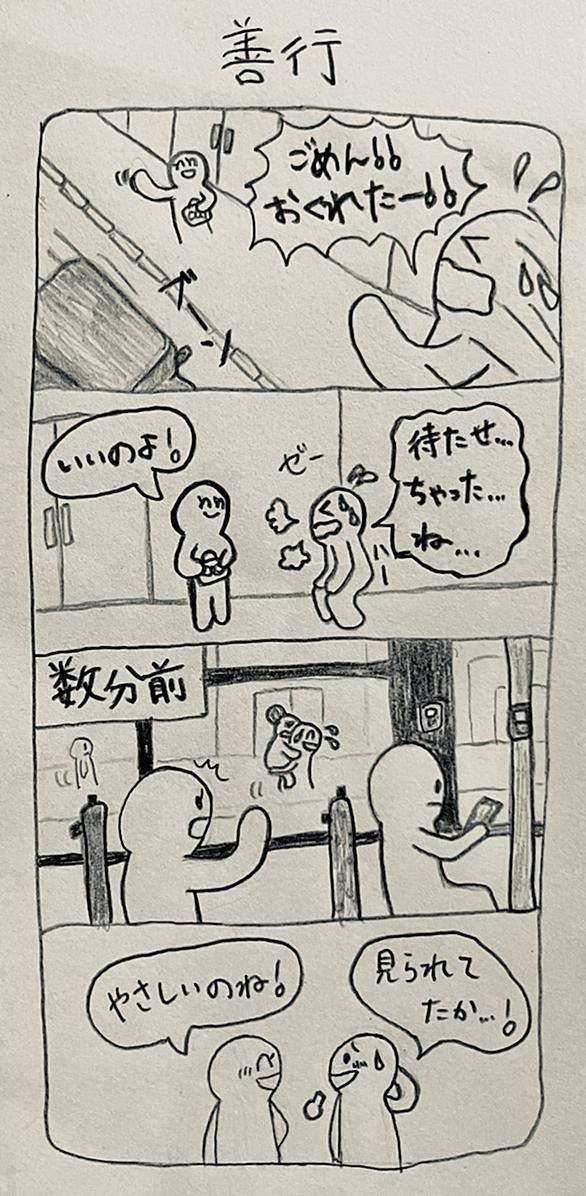 善行
ごめん!!
おくれたー!!
ブーン
待たせ…
ちゃった…
ね…
ゼー
ハー
いいのよ!
数分前
見られて
たか…!
やさしいのね!